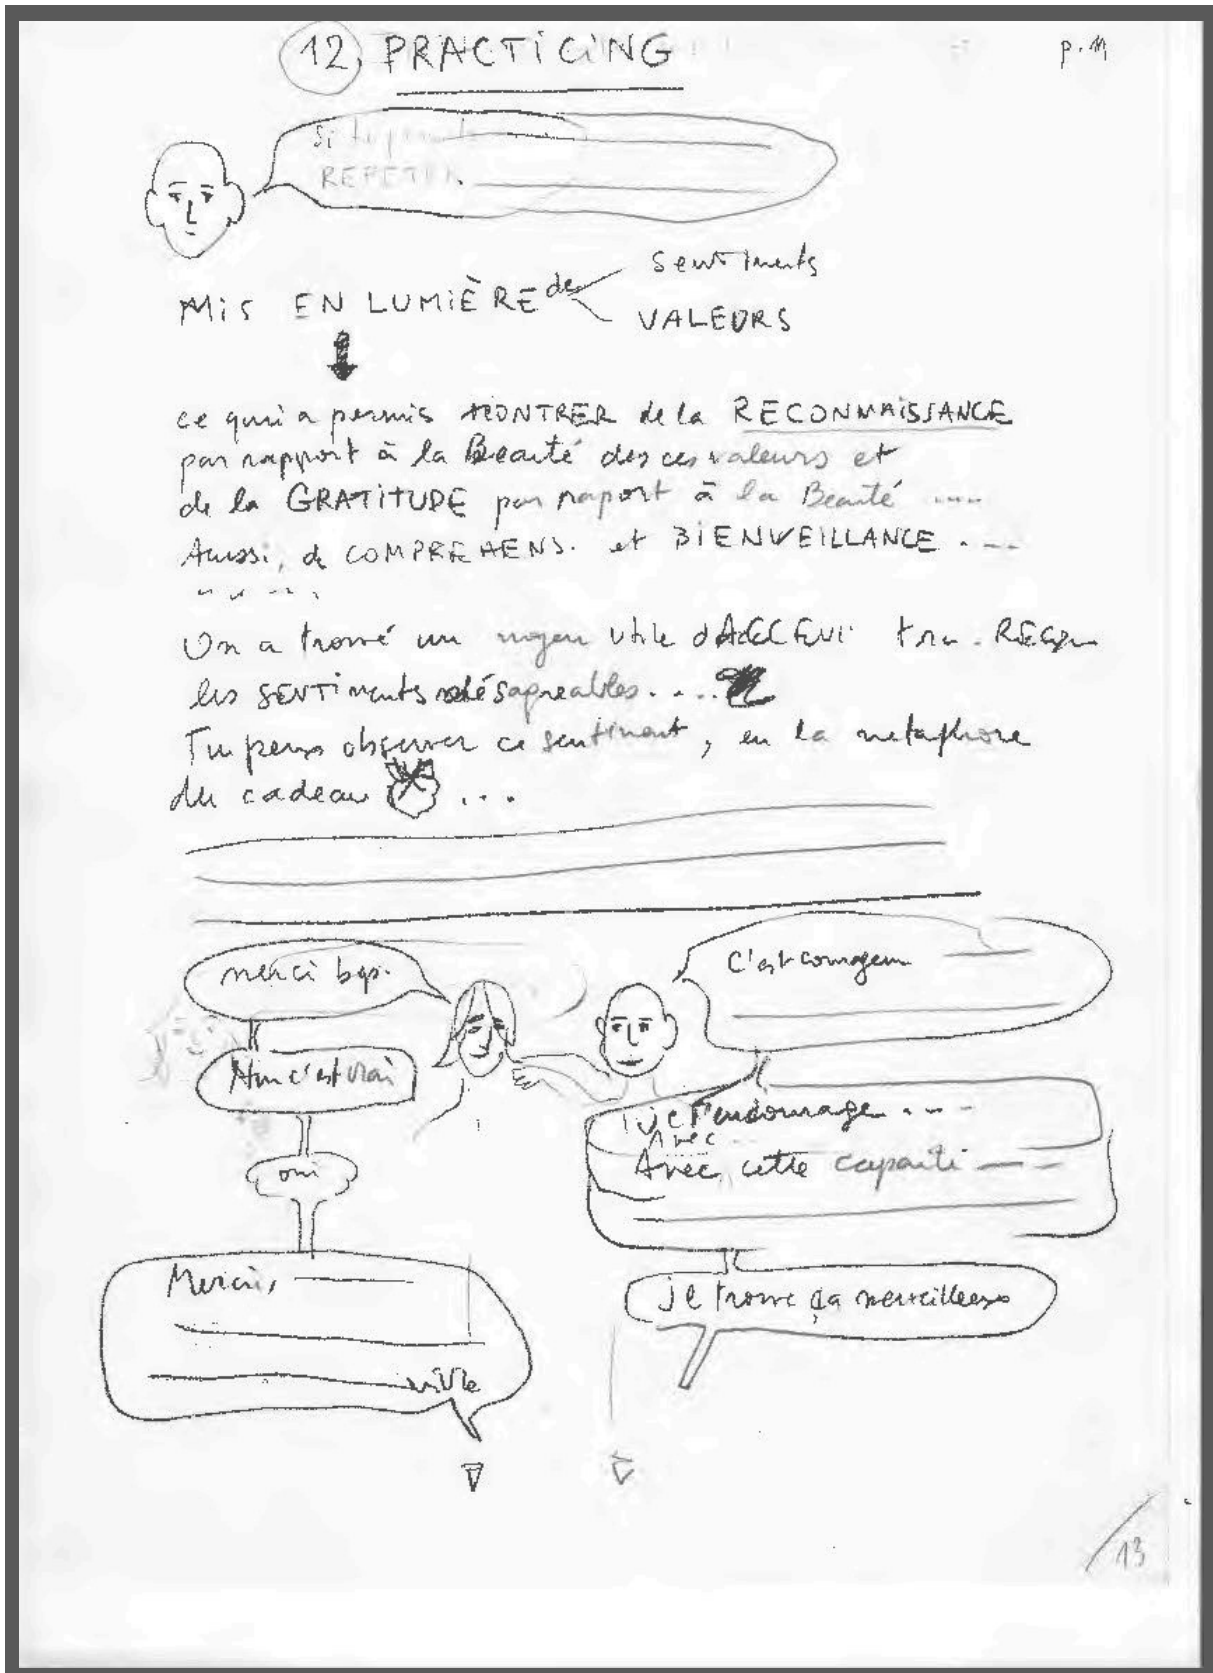 12. PRACTICING
p. 11
Si tu
REPETER
Mis EN LUMIÈRE de
sentiments
VALEURS
ce qui a permis MONTRER de la RECONNAISSANCE
par rapport à la Beauté des ces valeurs et
de la GRATITUDE par raport à la Beauté ....
Aussi, de COMPREHENS. et BIENVEILLANCE . ...
On a trouvé un moyen utile
les SENTiments désagreables. ...
Tu peux observer ce sentiment, en la metaphore
du cadeau ...
merci bqp.
C'est courageux
Hum c'est vrai
je t'encourage ....
Avec
Avec cette capacité
oui
Merci,
vivre
je trouve ça merveilleux
/13